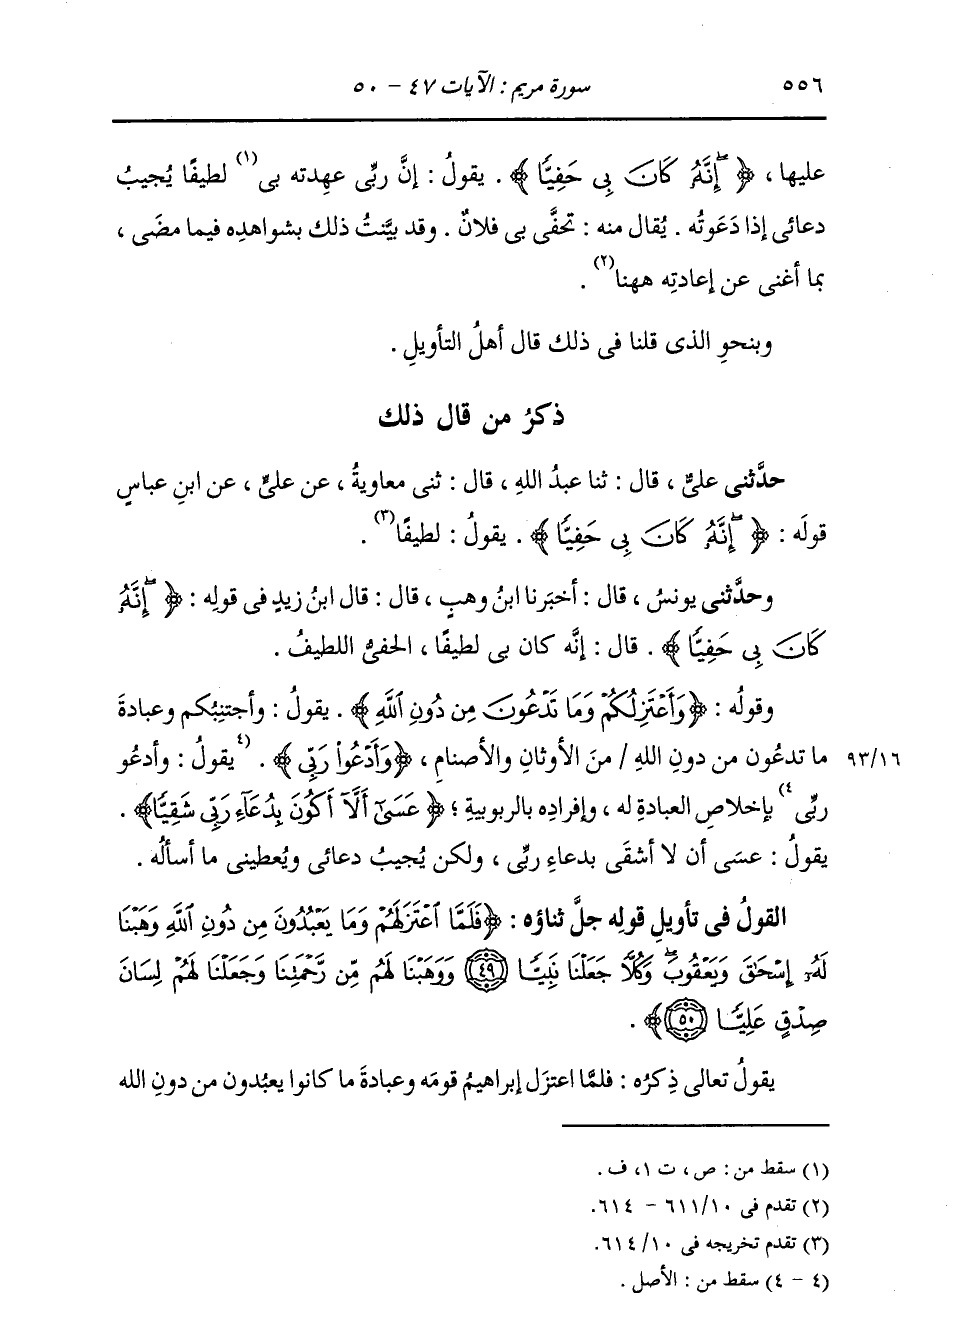 ٥٥٦ سورة مريم : الآيات ٤٧ - ٥٠
عليها ، ﴿ إِنَّهُۥ كَانَ بِى حَفِيًّا ﴾ . يقولُ : إنَّ ربِّى عهِدته بى(١) لطيفًا يُجيبُ
دعائى إذا دَعَوتُه . يُقال منه : تحفَّى بى فلانٌ . وقد بيَّنتُ ذلك بشواهدِه فيما مضَى ،
بما أغنى عن إعادتِه ههنا(٢) .
وبنحوِ الذى قلنا فى ذلك قال أهلُ التأويلِ .
ذكرُ من قال ذلك
حدَّثنى علىٌّ ، قال : ثنا عبدُ اللهِ ، قال : ثنى معاويةُ ، عن علىٍّ ، عن ابنِ عباسٍ
قولَه : ﴿ إِنَّهُۥ كَانَ بِى حَفِيًّا ﴾ . يقولُ : لطيفًا(٣) .
وحدَّثنى يونسُ ، قال : أخبَرنا ابنُ وهبٍ ، قال : قال ابنُ زيدٍ فى قولِه : ﴿ إِنَّهُۥ
كَانَ بِى حَفِيًّا ﴾ . قال : إنَّه كان بى لطيفًا ، الحفىُّ اللطيفُ .
وقولُه : ﴿ وَأَعْتَزِلُكُمْ وَمَا تَدْعُونَ مِن دُونِ ٱللَّهِ ﴾ . يقولُ : وأجتنِبُكم وعبادةَ
ما تدعُون من دونِ اللهِ / منَ الأوثانِ والأصنامِ ، ﴿ وَأَدْعُوا۟ رَبِّى ﴾ . (٤يقولُ : وأدعُو ٩٣/١٦
ربِّى٤) بإخلاصِ العبادةِ له ، وإفرادِه بالربوبيةِ ؛ ﴿ عَسَىٰٓ أَلَّآ أَكُونَ بِدُعَآءِ رَبِّى شَقِيًّا ﴾ .
يقولُ : عسَى أن لا أشقَى بدعاءِ ربِّى ، ولكن يُجيبُ دعائى ويُعطينى ما أسألُه .
القولُ فى تأويلِ قولِه جلَّ ثناؤه : ﴿ فَلَمَّا ٱعْتَزَلَهُمْ وَمَا يَعْبُدُونَ مِن دُونِ ٱللَّهِ وَهَبْنَا
لَهُۥٓ إِسْحَٰقَ وَيَعْقُوبَ ۖ وَكُلًّا جَعَلْنَا نَبِيًّا ٤٩ وَوَهَبْنَا لَهُم مِّن رَّحْمَتِنَا وَجَعَلْنَا لَهُمْ لِسَانَ
صِدْقٍ عَلِيًّا ٥٠ ﴾ .
يقولُ تعالى ذِكرُه : فلمَّا اعتزَل إبراهيمُ قومَه وعبادةَ ما كانوا يعبُدون من دونِ الله
(١) سقط من : ص ، ت ١ ، ف .
(٢) تقدم فى ٦١١/١٠ - ٦١٤ .
(٣) تقدم تخريجه فى ٦١٤/١٠ .
(٤ - ٤) سقط من : الأصل .